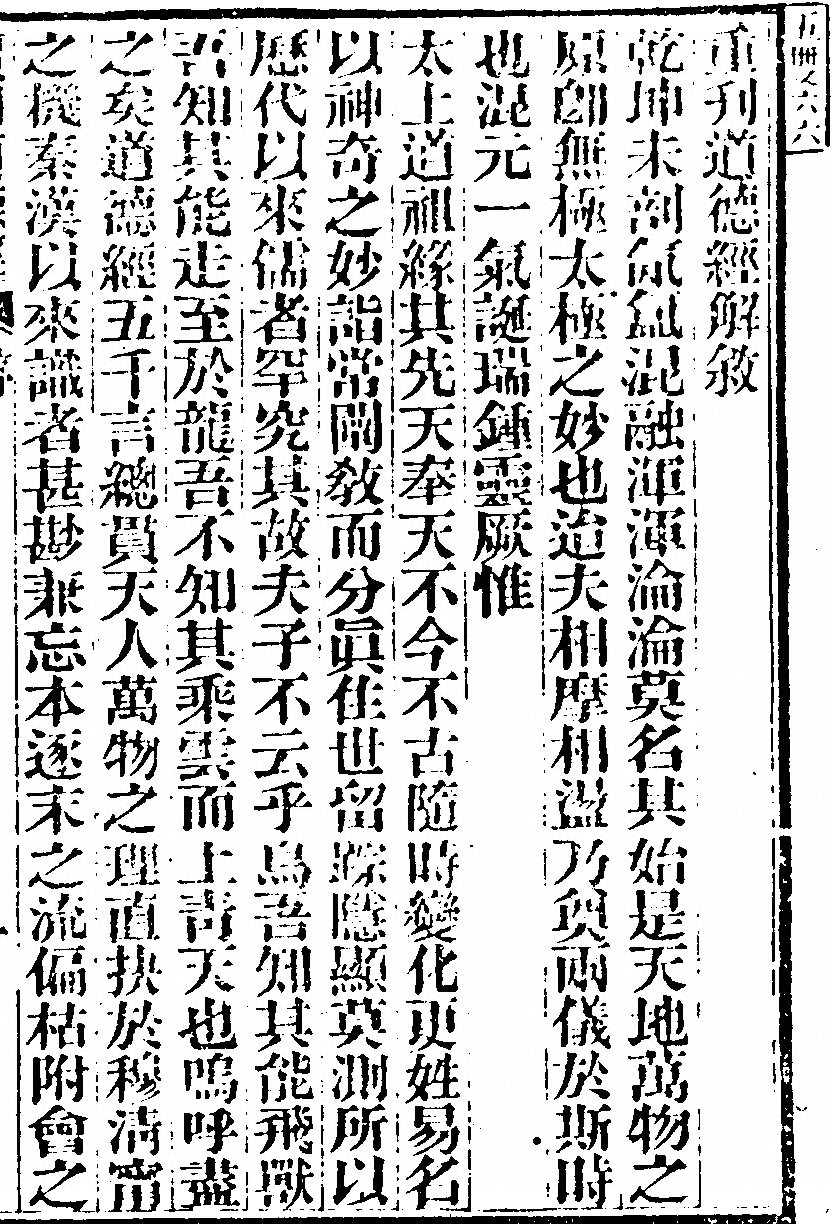 重刋道德經解敘
乾坤未剖氤氳混融渾渾淪淪莫名其始是天地萬物之
原卽無極太極之妙也迨夫相摩相盪乃奠兩儀於斯時
也混元一氣誕瑞鍾靈厥惟
太上道祖緣其先天奉天不今不古隨時變化更姓易名
以神奇之妙詣常闡敎而分眞住世留踪隱顯莫測所以
歷代以來儒者罕究其故夫子不云乎鳥吾知其能飛獸
吾知其能走至於龍吾不知其乘雲而上靑天也嗚呼盡
之矣道德經五千言總貫天人萬物之理直抉於穆淸寗
之機秦漢以來識者甚尠兼忘本逐末之流偏枯附會之